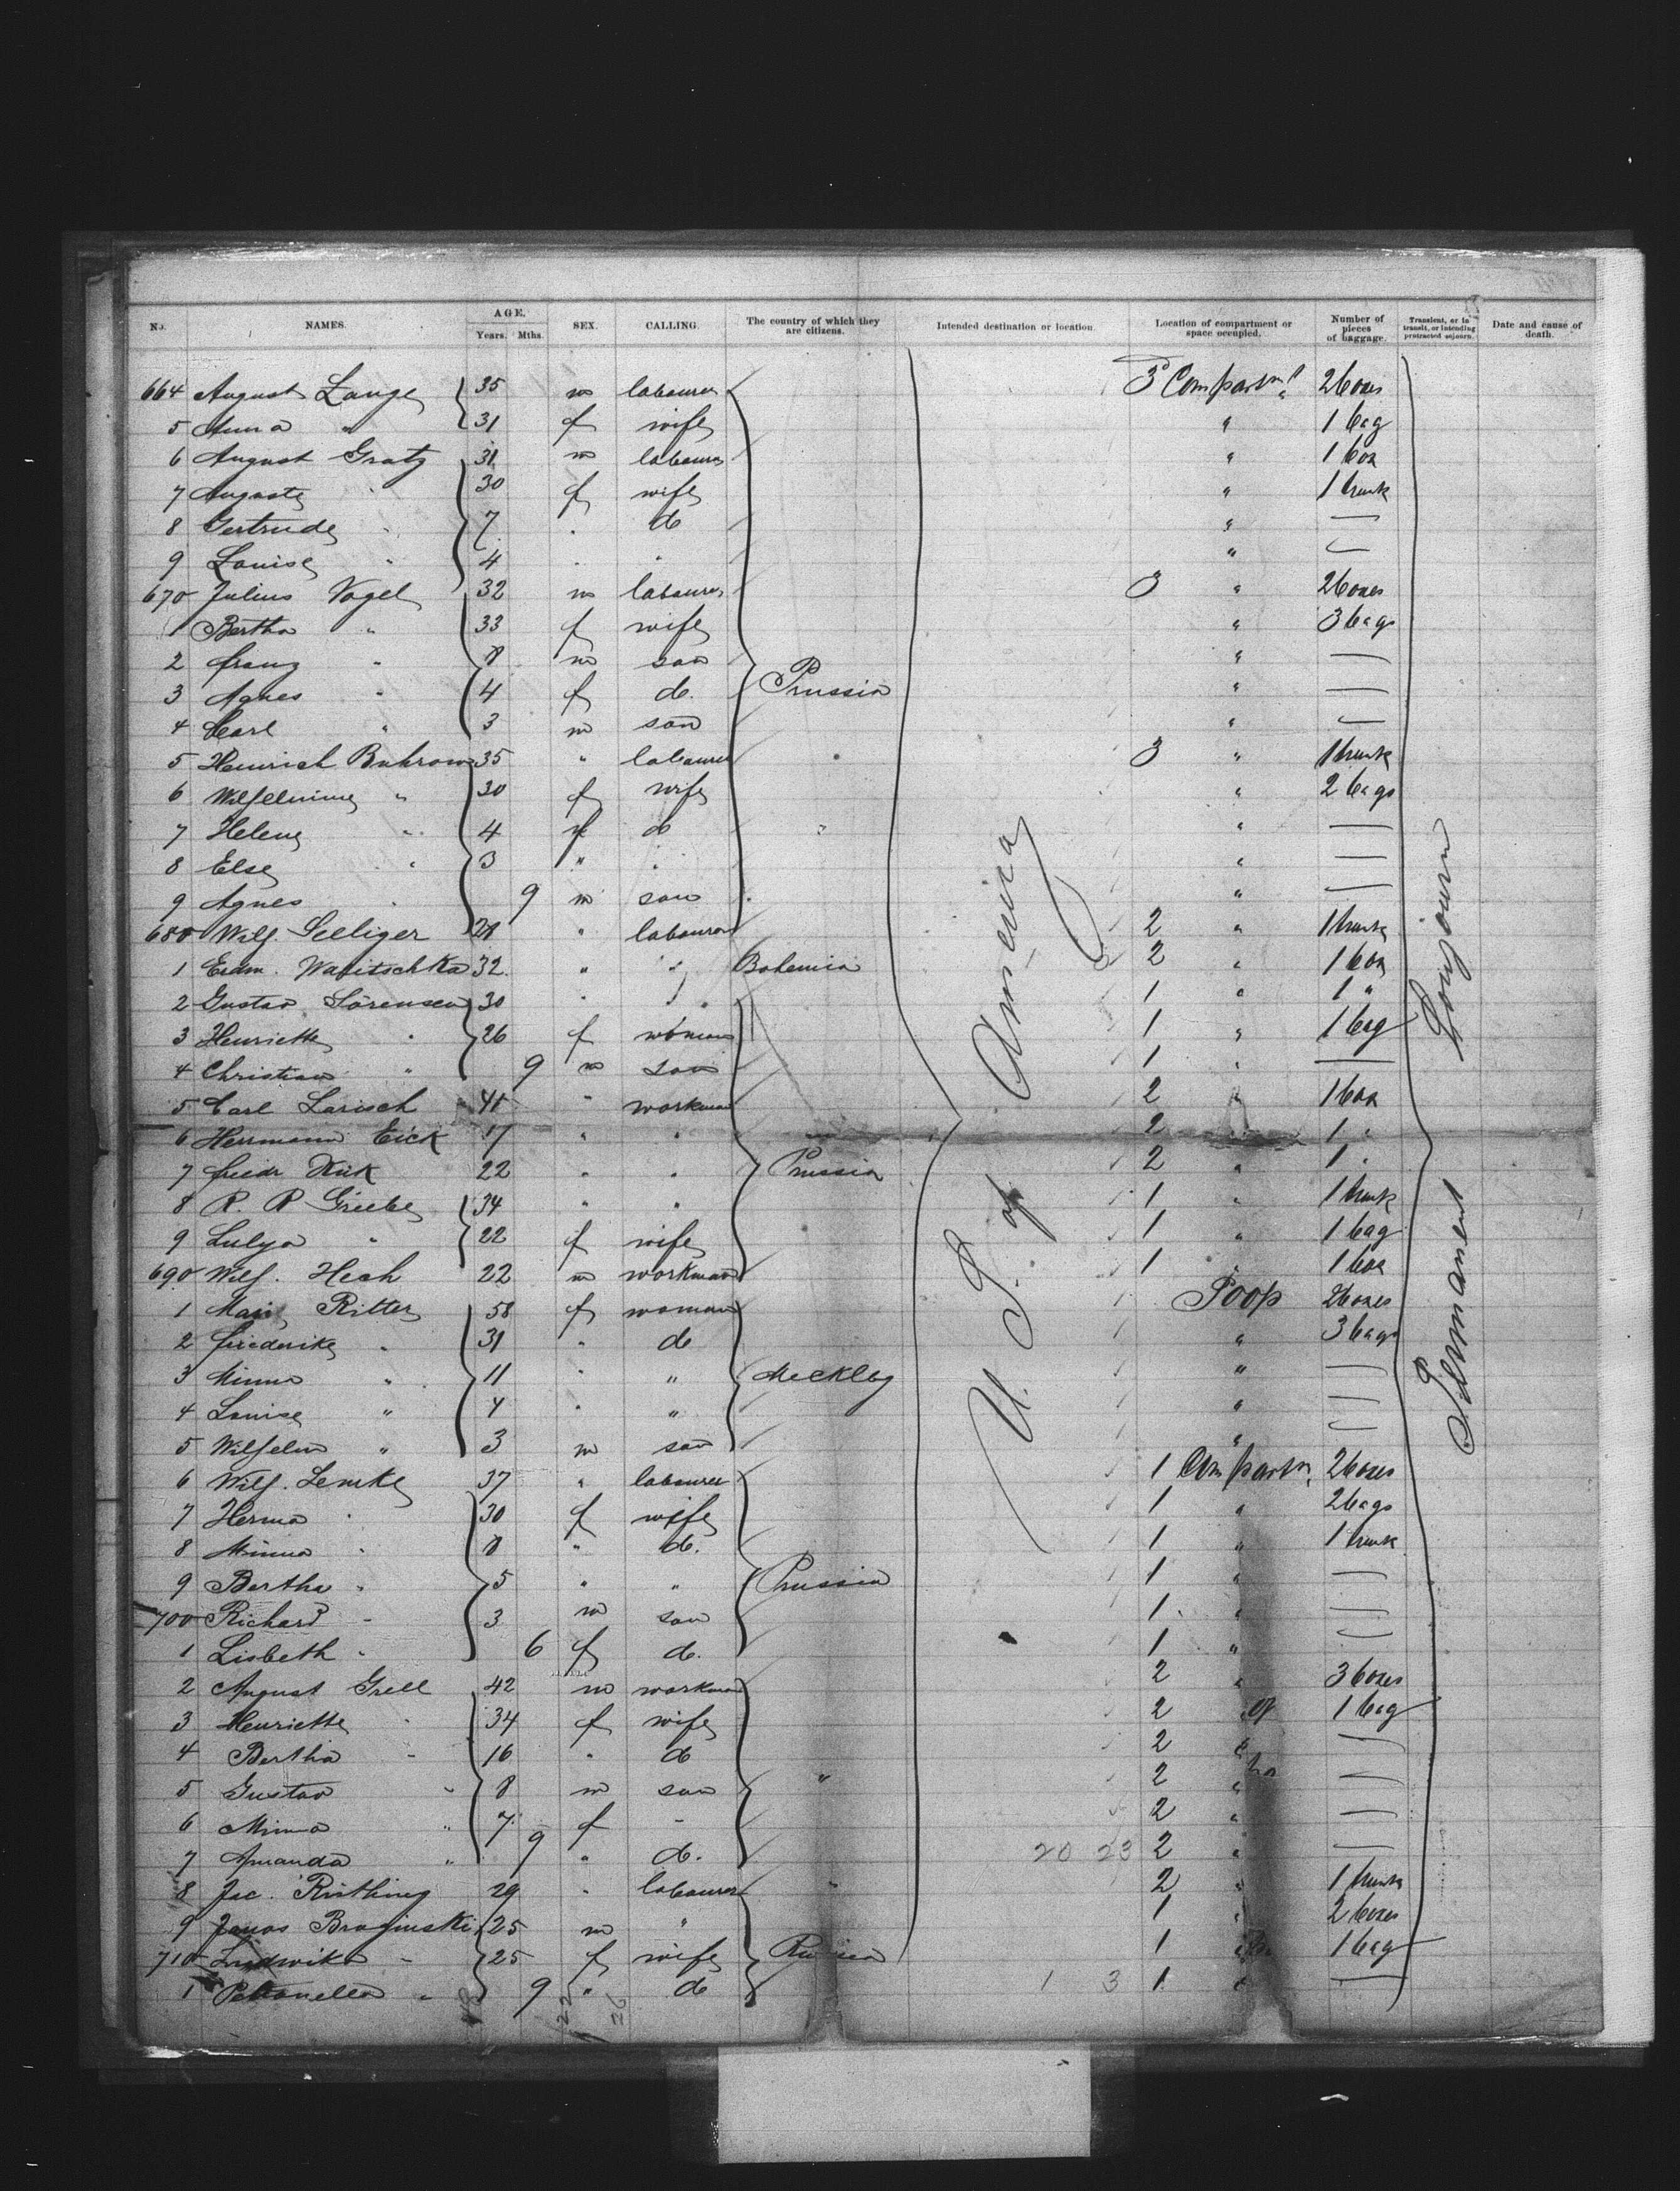 No. NAMES. AGE. Years. Mths. SEX. CALLING. The country of which they are citizens. Intended destination or location. Location of compartment or space occupied. Number of pieces of baggage. Transient, or in transit, or intending protracted sojourn. Date and cause of death.
664 August Lange 35 m labourer 3 Compartmt 2 boxes
5 Anna " 31 f wife " 1 bag
6 August Gratz 31 m labourer " 1 box
7 Auguste " 30 f wife " 1 trunk
8 Gertrude " 7 " do " —
9 Louise " 4 " " " —
670 Julius Vogel 32 m labourer 3 " 2 boxes
1 Bertha " 33 f wife " 3 bags
2 Franz " 8 m son " —
3 Agnes " 4 f do. Prussia " —
4 Carl " 3 m son " —
5 Heinrich Buhrow 35 " labourer 3 " 1 trunk
6 Wilhelmine " 30 f wife " 2 bags
7 Helene " 4 f do " " —
8 Else " 3 " " " —
9 Agnes " 9 m son " —
680 Wilh. Seeliger 28 " labourer 2 " 1 trunk
1 Erdm. Wabitschka 32 " " Bohemia 2 " 1 box
2 Gustav Sörensen 30 " " 1 " 1 "
3 Henriette " 26 f woman 1 " 1 bag
4 Christian " 9 m son 1 " —
5 Carl Larisch 41 " workman 2 " 1 box
6 Herrmann Eick 17 " " 2 " 1 "
7 Friedr 22 " " Prussia 2 " 1 "
8 R. R Griebe 34 " " 1 " 1 trunk
9 " 22 f wife 1 " 1 bag
690 Wilh. Hech 22 m workman 1 " 1 box
1 Marie Ritter 58 f woman Poop 2 boxes
2 Friederike " 31 " do " 3 bags
3 Minna " 11 " " Mecklbg " —
4 Louise " 4 " " " —
5 Wilhelm " 3 m son " —
6 Wilh. Lemke 37 " labourer 1 Compartm. 2 boxes
7 Herma " 30 f wife 1 " 2 bags
8 Minna " 8 " do. 1 " 1 trunk
9 Bertha " 5 " " Prussia 1 " —
700 Richard " 3 m son 1 " —
1 Lisbeth " 6 f do. 1 " —
2 August Grell 42 m workman 2 " 3 boxes
3 Henriette " 34 f wife 2 " 1 bag
4 Bertha " 16 " do 2 " —
5 Gustav " 8 m son " 2 " —
6 Minna " 7 f " 2 " —
7 Amanda " 9 " do. 20 23 2 " —
8 Jac. 29 " labourer " 2 " 1 trunk
9 Jonas Braginski 25 m " 1 " 2 boxes
710 Ludwika " 25 f wife Russia 1 " 1 bag
1 Petronella " 9 " do 1 3 1 " —
U. S. of America
Permanent Sojourn